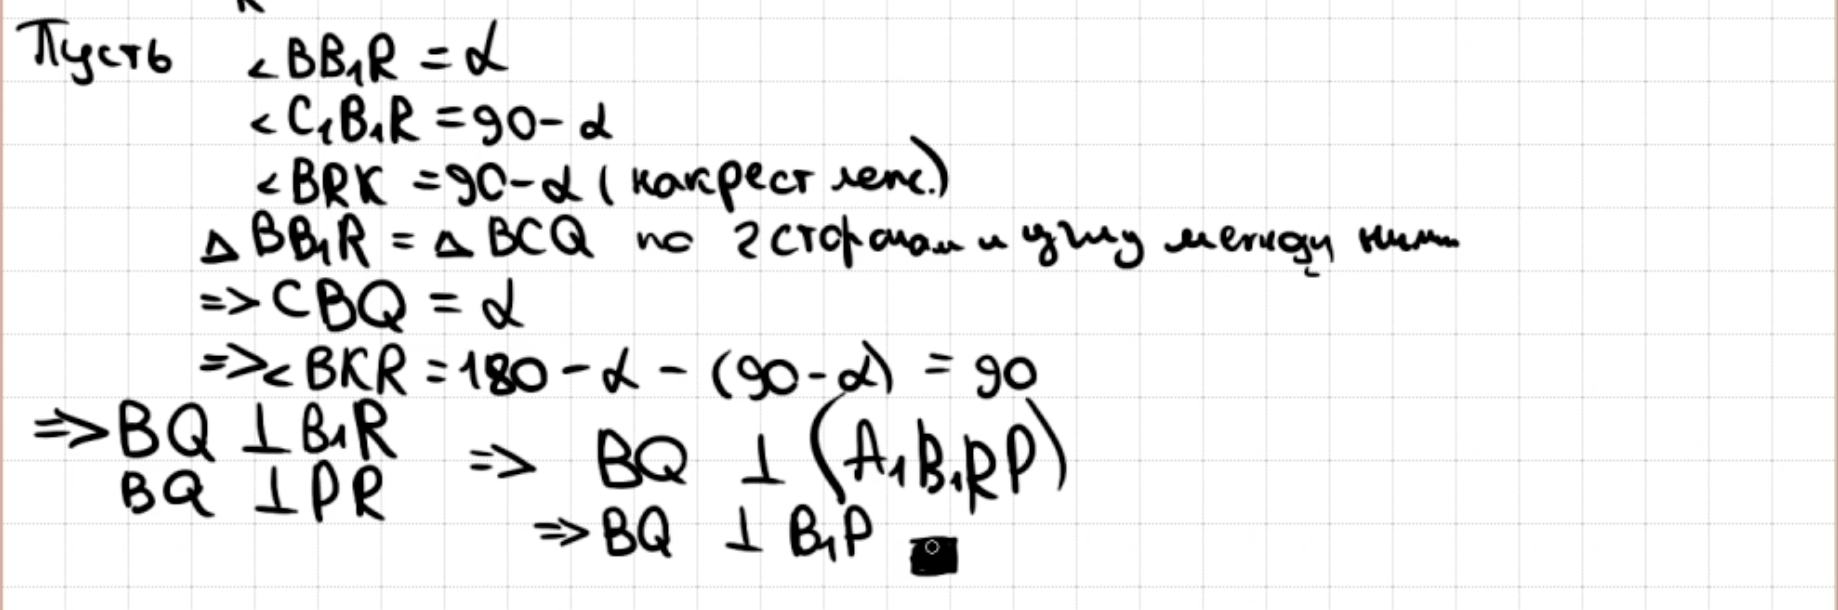 Пусть ∠BB₁R = α
∠C₁B₁R = 90 - α
∠BRK = 90 - α (накрест леж.)
△ BB₁R = △ BCQ по 2 сторонам и углу между ними
=> CBQ = α
=> ∠BKR = 180 - α - (90 - α) = 90
=> BQ ⊥ B₁R
BQ ⊥ PR
=> BQ ⊥ (A₁B₁RP)
=> BQ ⊥ B₁P